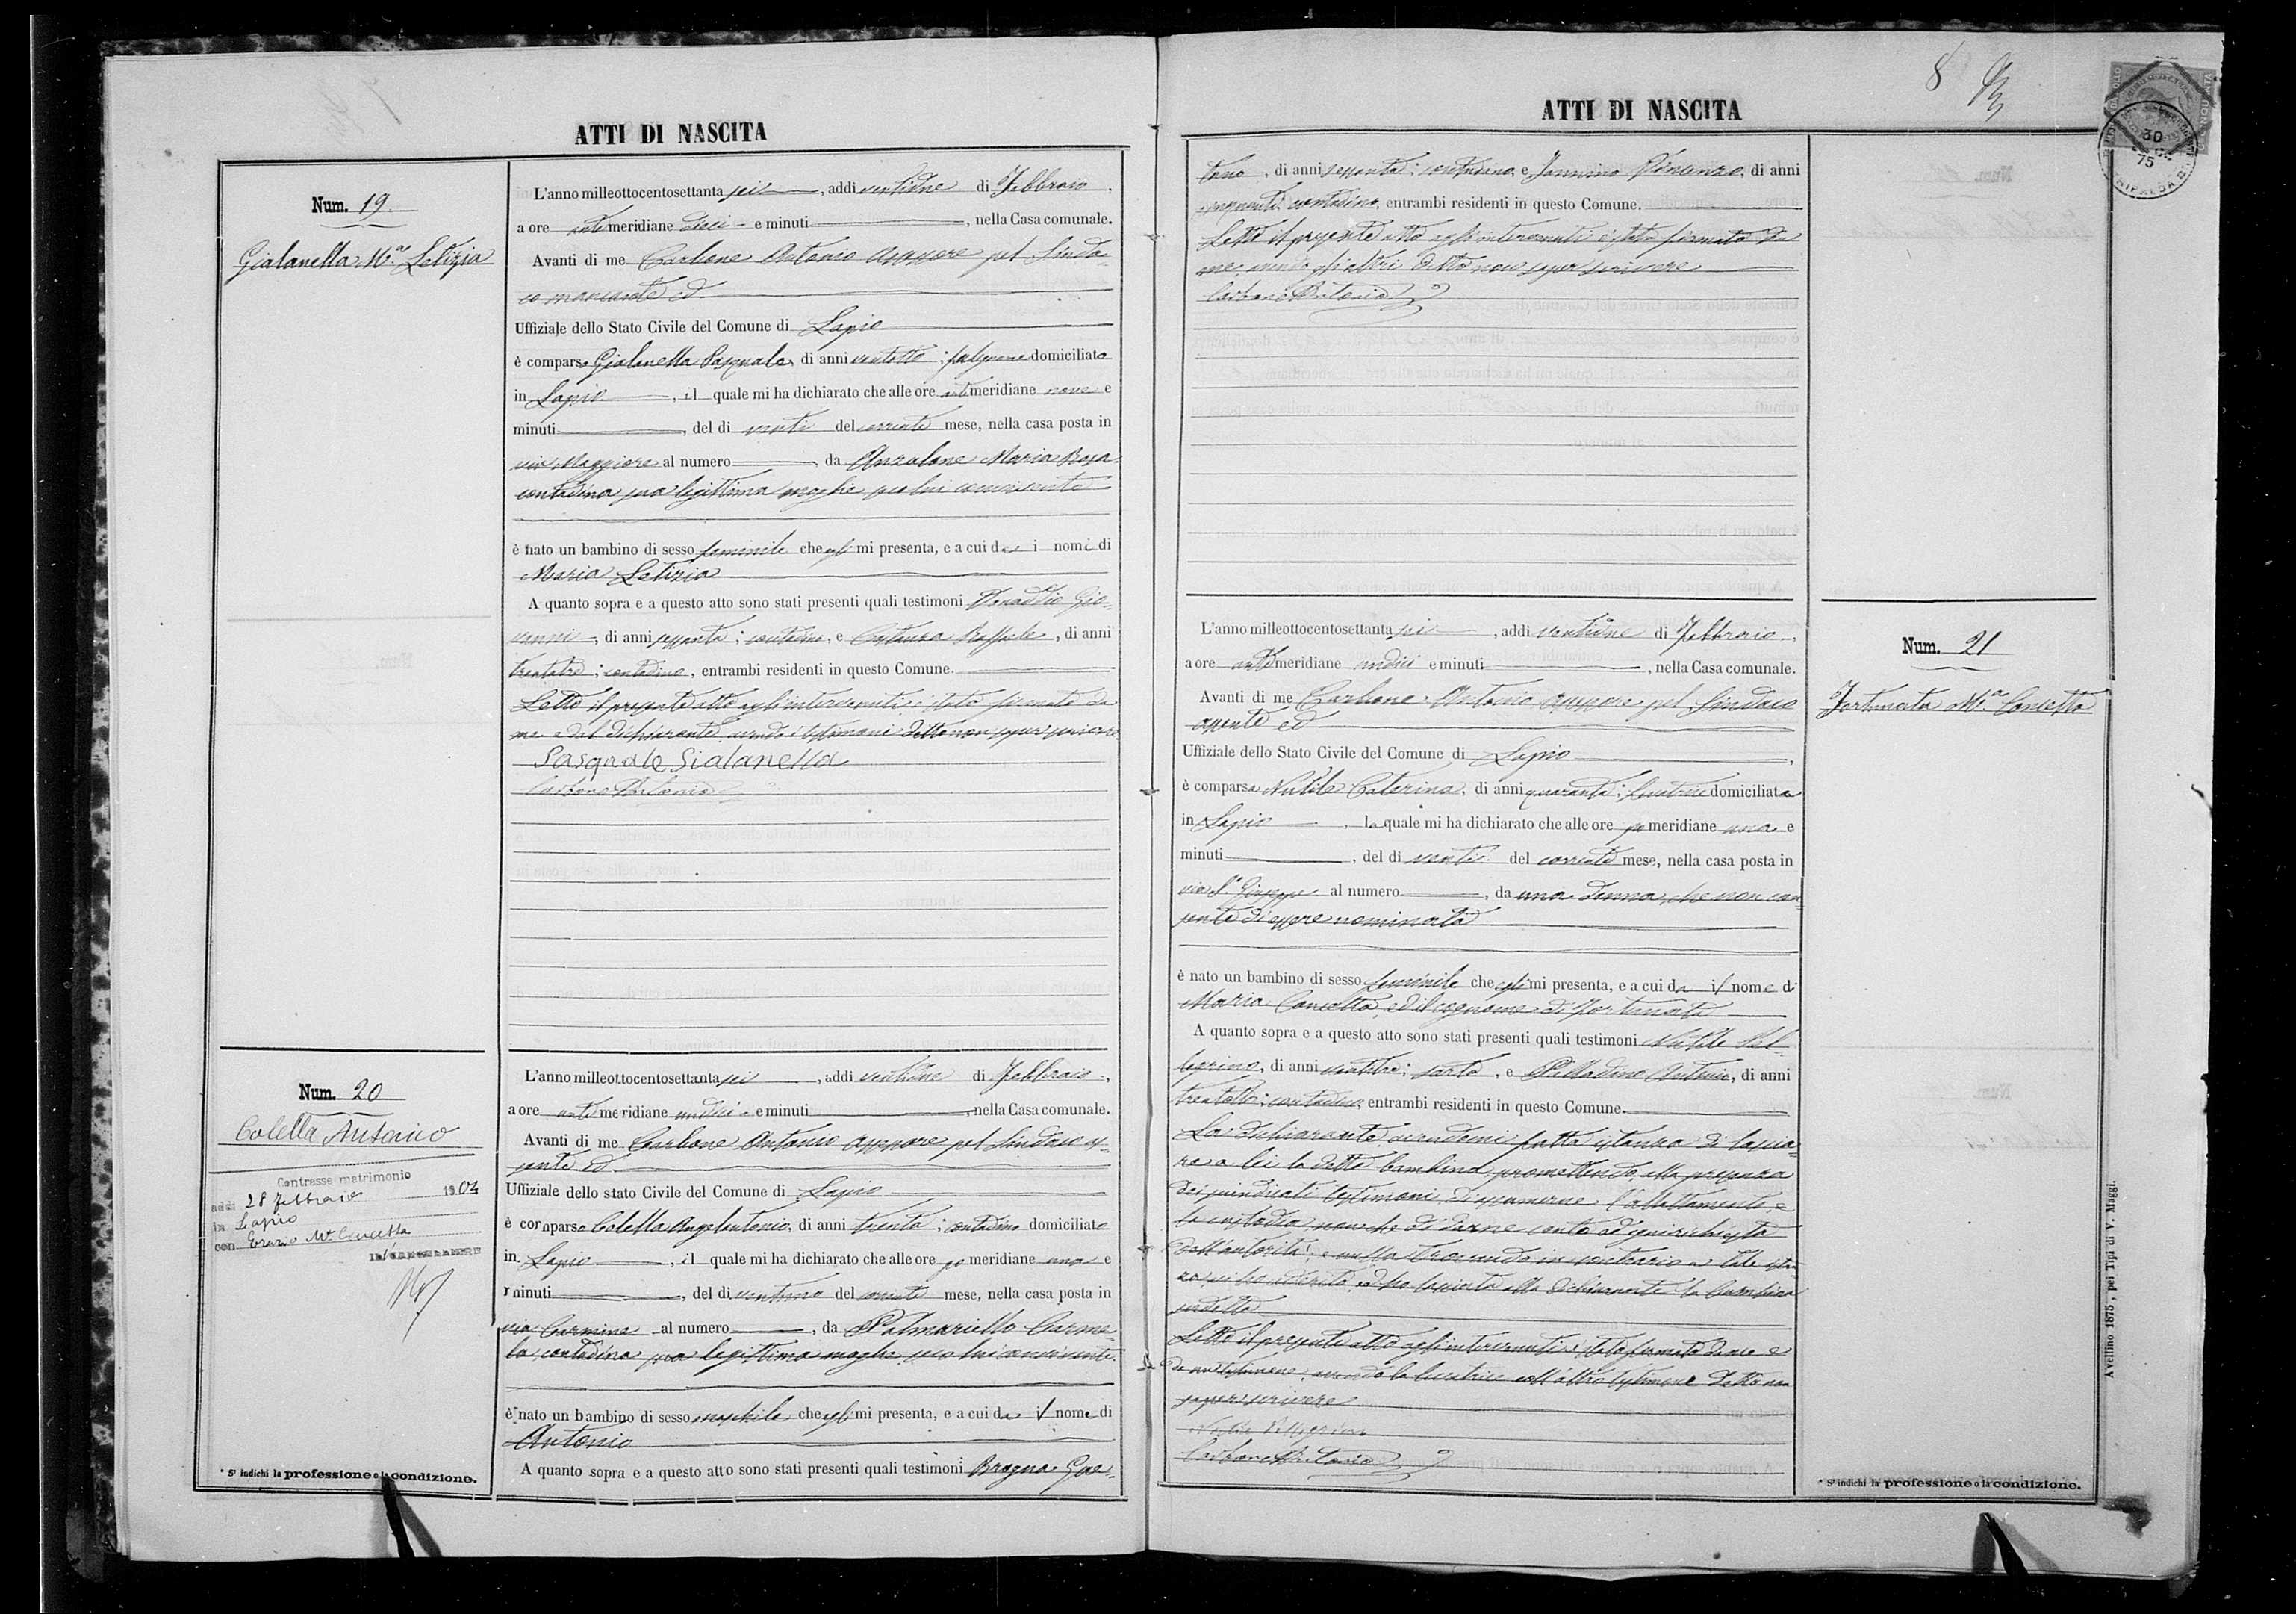 ATTI DI NASCITA
Num. 19
Gialanella M.a Letizia
L'anno milleottocentosettanta sei, addì ventidue di Febbraio,
a ore anti meridiane dieci e minuti, nella Casa comunale.
Avanti di me Carbone Antonio Assessore pel Sinda-
co mancante ed
Uffiziale dello Stato Civile del Comune di Lapio
è comparso Gialanella Pasquale, di anni ventotto; falegname domiciliato
in Lapio, il quale mi ha dichiarato che alle ore antimeridiane nove e
minuti, del dì venti del corrente mese, nella casa posta in
via Maggiore al numero, da Anzalone Maria Rosa
contadina sua legittima moglie seco lui convivente
è nato un bambino di sesso feminile che egli mi presenta, e a cui dà i nomi di
Maria Letizia
A quanto sopra e a questo atto sono stati presenti quali testimoni Donaddio Gio-
vanni, di anni sessanta; contadino, e Costanza Raffaele, di anni
trentatre; contadino, entrambi residenti in questo Comune.
Letto il presente atto agli intervenuti è stato firmato da
me e dal dichiarante, avendo i testimoni detto non saper scrivere
Pasquale Gialanella
Carbone Antonio
Num. 20
Colella Antonio
Contrasse matrimonio
addì 28 Febbraio 1904
in Lapio
con M.a Concetta
L'anno milleottocentosettanta sei, addì ventidue di Febbraio,
a ore antimeridiane undici e minuti, nella Casa comunale.
Avanti di me Carbone Antonio Assessore pel Sindaco as-
sente ed
Uffiziale dello stato Civile del Comune di Lapio
è comparso Colella Angelantonio, di anni trenta; contadino domiciliato
in Lapio, il quale mi ha dichiarato che alle ore pomeridiane una e
minuti, del dì ventuno del corrente mese, nella casa posta in
via Carmine al numero, da Palmariello Carme-
la, contadina sua legittima moglie seco lui convivente
è nato un bambino di sesso maschile che egli mi presenta, e a cui dà il nome di
Antonio
A quanto sopra e a questo atto sono stati presenti quali testimoni Bragna Gae-
* S' indichi la professione o la condizione.
8
ATTI DI NASCITA
30
75
tano, di anni sessanta; contadino, e Iannino Vincenzo, di anni
cinquanta; contadino, entrambi residenti in questo Comune.
Letto il presente atto agli intervenuti è stato firmato da
me avendo gli altri detto non saper scrivere
Carbone Antonio
Num. 21
Fortunata M.a Concetta
L'anno milleottocentosettanta sei, addì ventidue di Febbraio,
a ore antimeridiane undici e minuti, nella Casa comunale.
Avanti di me Carbone Antonio Assessore pel Sindaco
assente ed
Uffiziale dello Stato Civile del Comune di Lapio,
è comparsa Nutile Caterina, di anni quaranta; levatrice domiciliata
in Lapio, la quale mi ha dichiarato che alle ore pomeridiane una e
minuti, del dì venti del corrente mese, nella casa posta in
via S. Giuseppe al numero, da una donna, che non con-
sente di essere nominata
è nato un bambino di sesso feminile che egli mi presenta, e a cui dà il nome di
Maria Concetta, ed il cognome di Fortunata
A quanto sopra e a questo atto sono stati presenti quali testimoni Nutile Pel-
legrino, di anni ventitre; sarto, e Palladino Antonio, di anni
trentotto; contadino, entrambi residenti in questo Comune.
La dichiarante avendomi fatta istanza di lascia-
re a lei la detta bambina promettendo, alla presenza
dei suindicati testimoni, di assumerne l'allattamento, e
la custodia, nonchè di darne conto ad ogni richiesta
dell'autorità, e nulla trovando in contrario a tale istan-
za, vi ho aderito, ed ho lasciata alla dichiarante la bambina
sudetta
Letto il presente atto agli intervenuti è stato firmato da me e
da un testimone, avendo la levatrice coll'altro testimone detto non
saper scrivere
Nutile Pellegrino
Carbone Antonio
* S' indichi la professione o la condizione.
Avellino 1875, pei Tipi di V. Maggi.